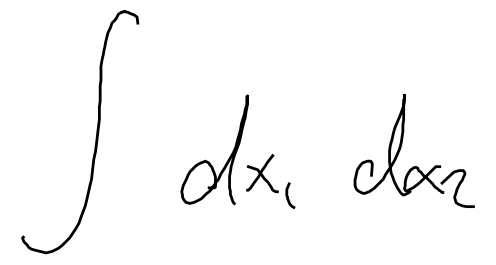 ∫ dx₁ dx₂